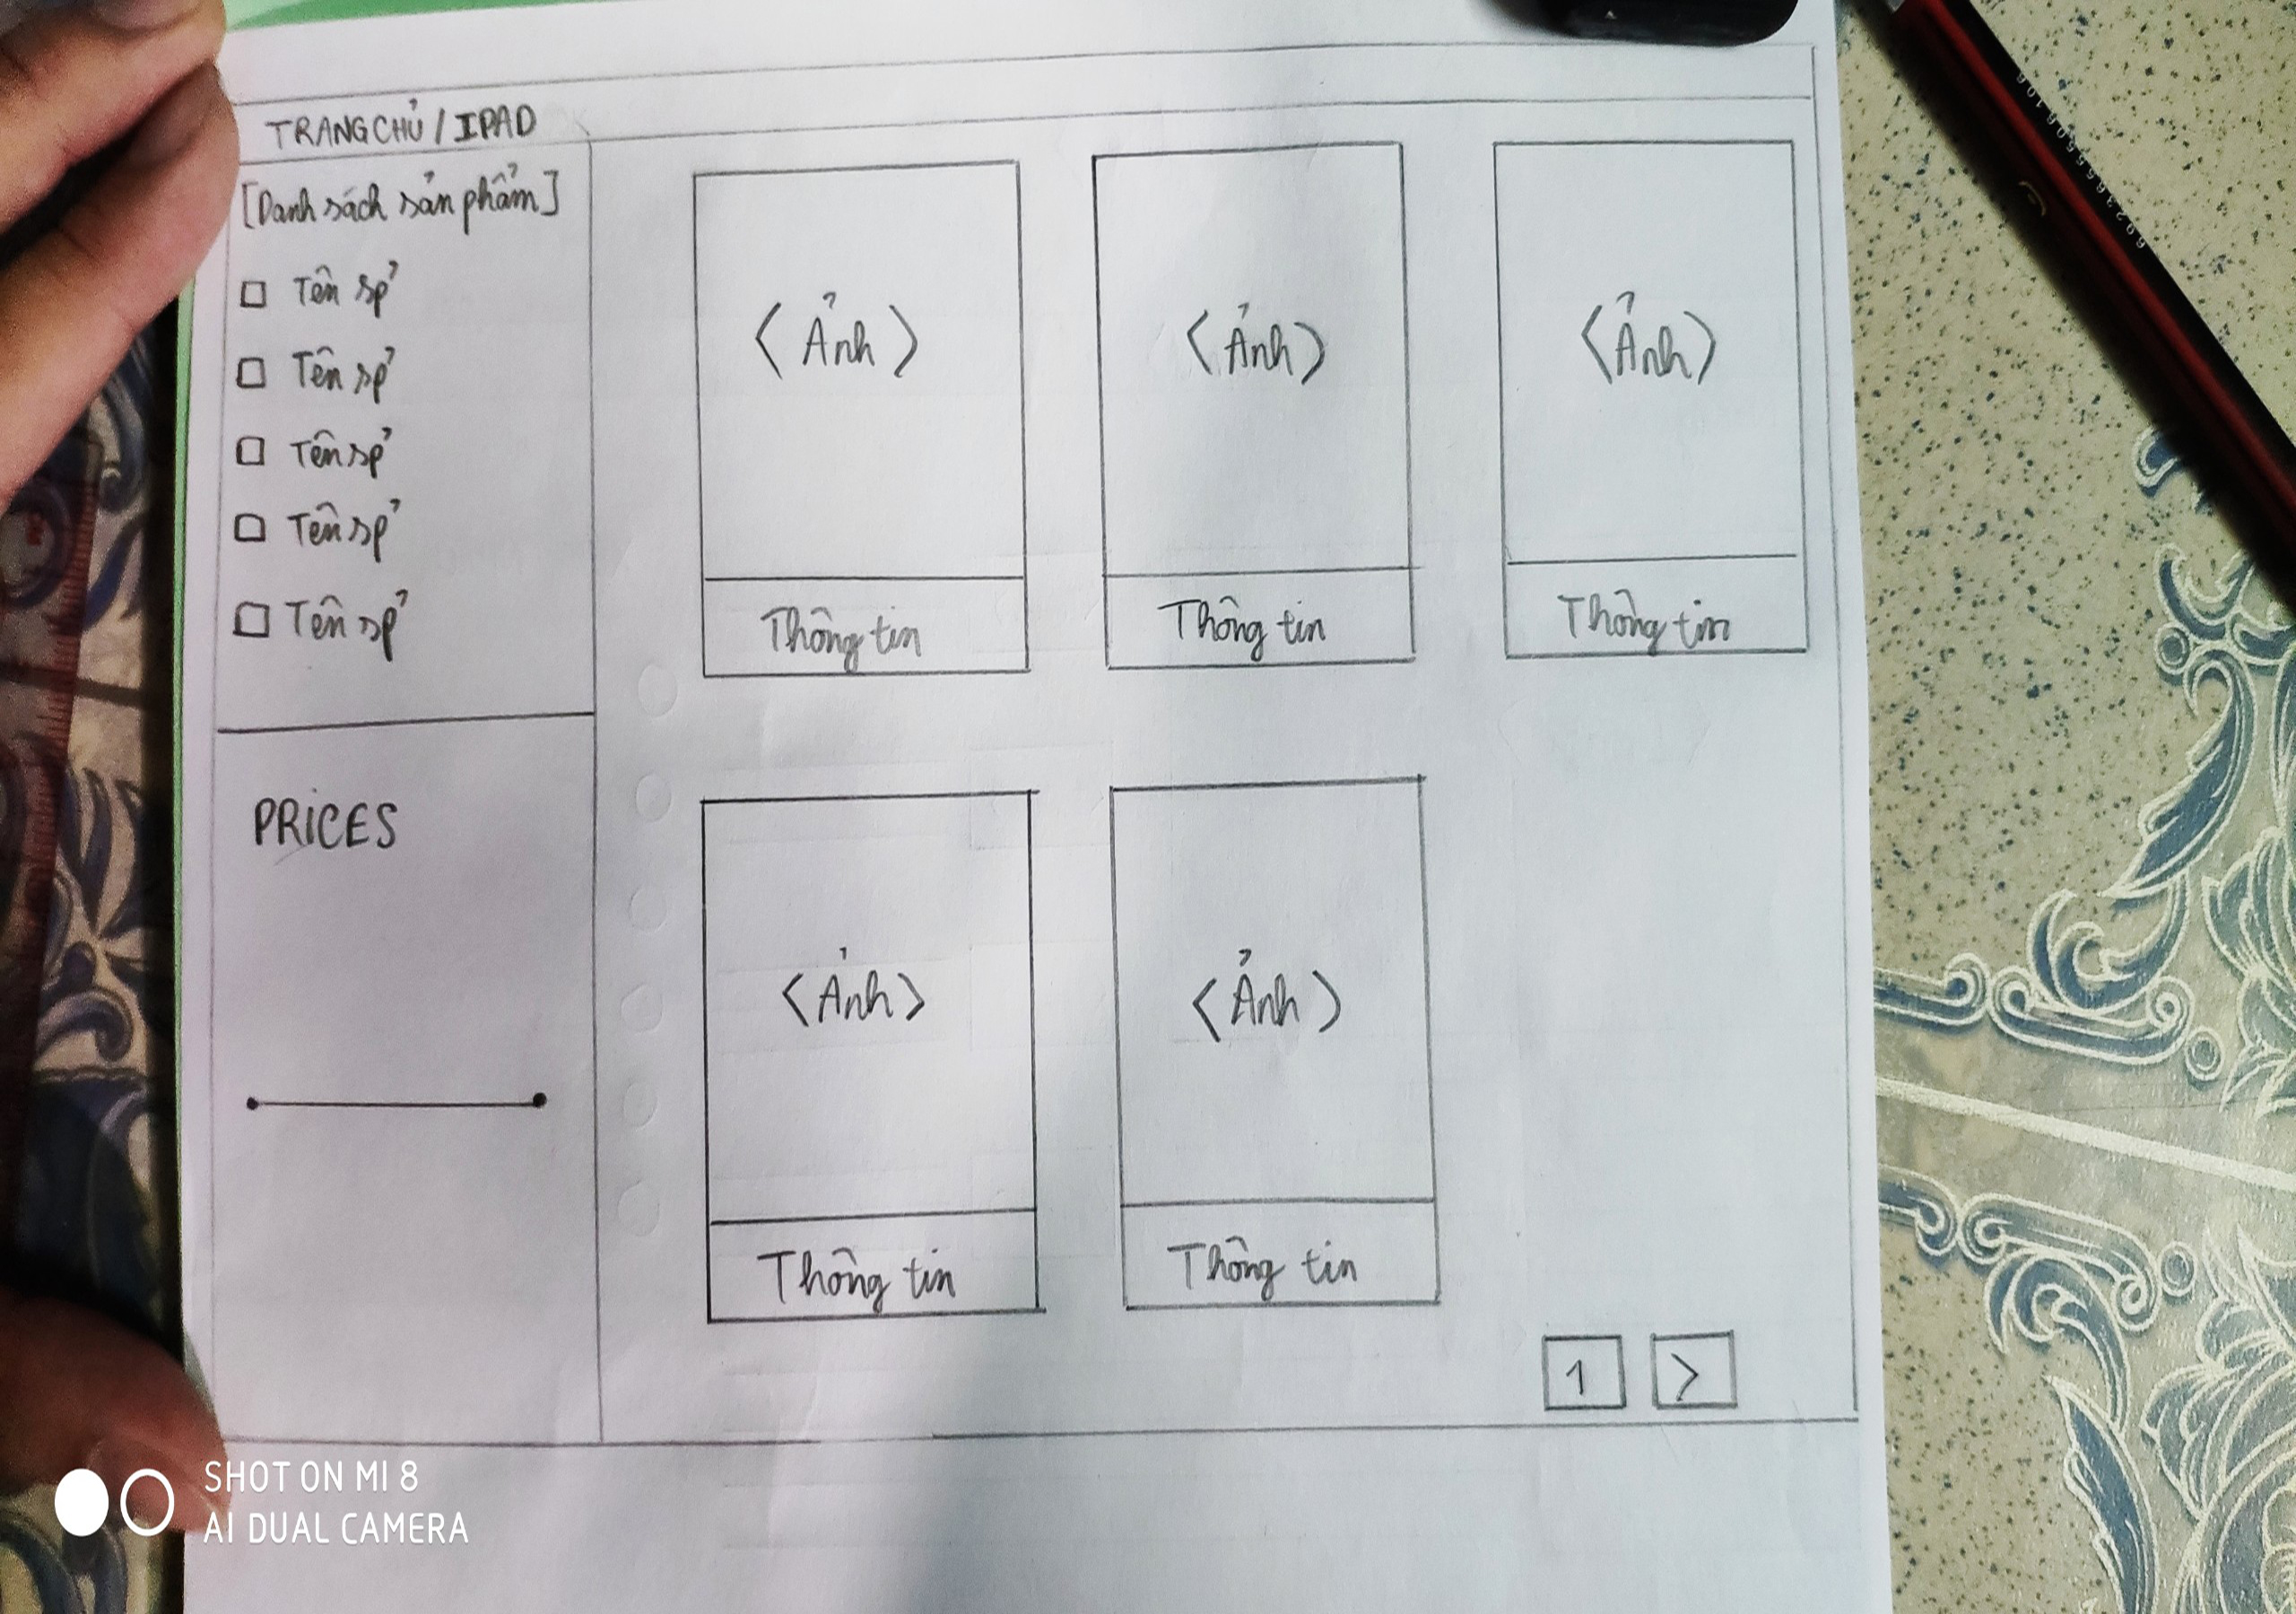 TRANG CHỦ / IPAD
[Danh sách sản phẩm]
Tên sp'
Tên sp'
Tên sp'
Tên sp'
Tên sp'
PRICES
<Ảnh>
Thông tin
<Ảnh>
Thông tin
<Ảnh>
Thông tin
<Ảnh>
Thông tin
<Ảnh>
Thông tin
1 >
SHOT ON MI 8
AI DUAL CAMERA